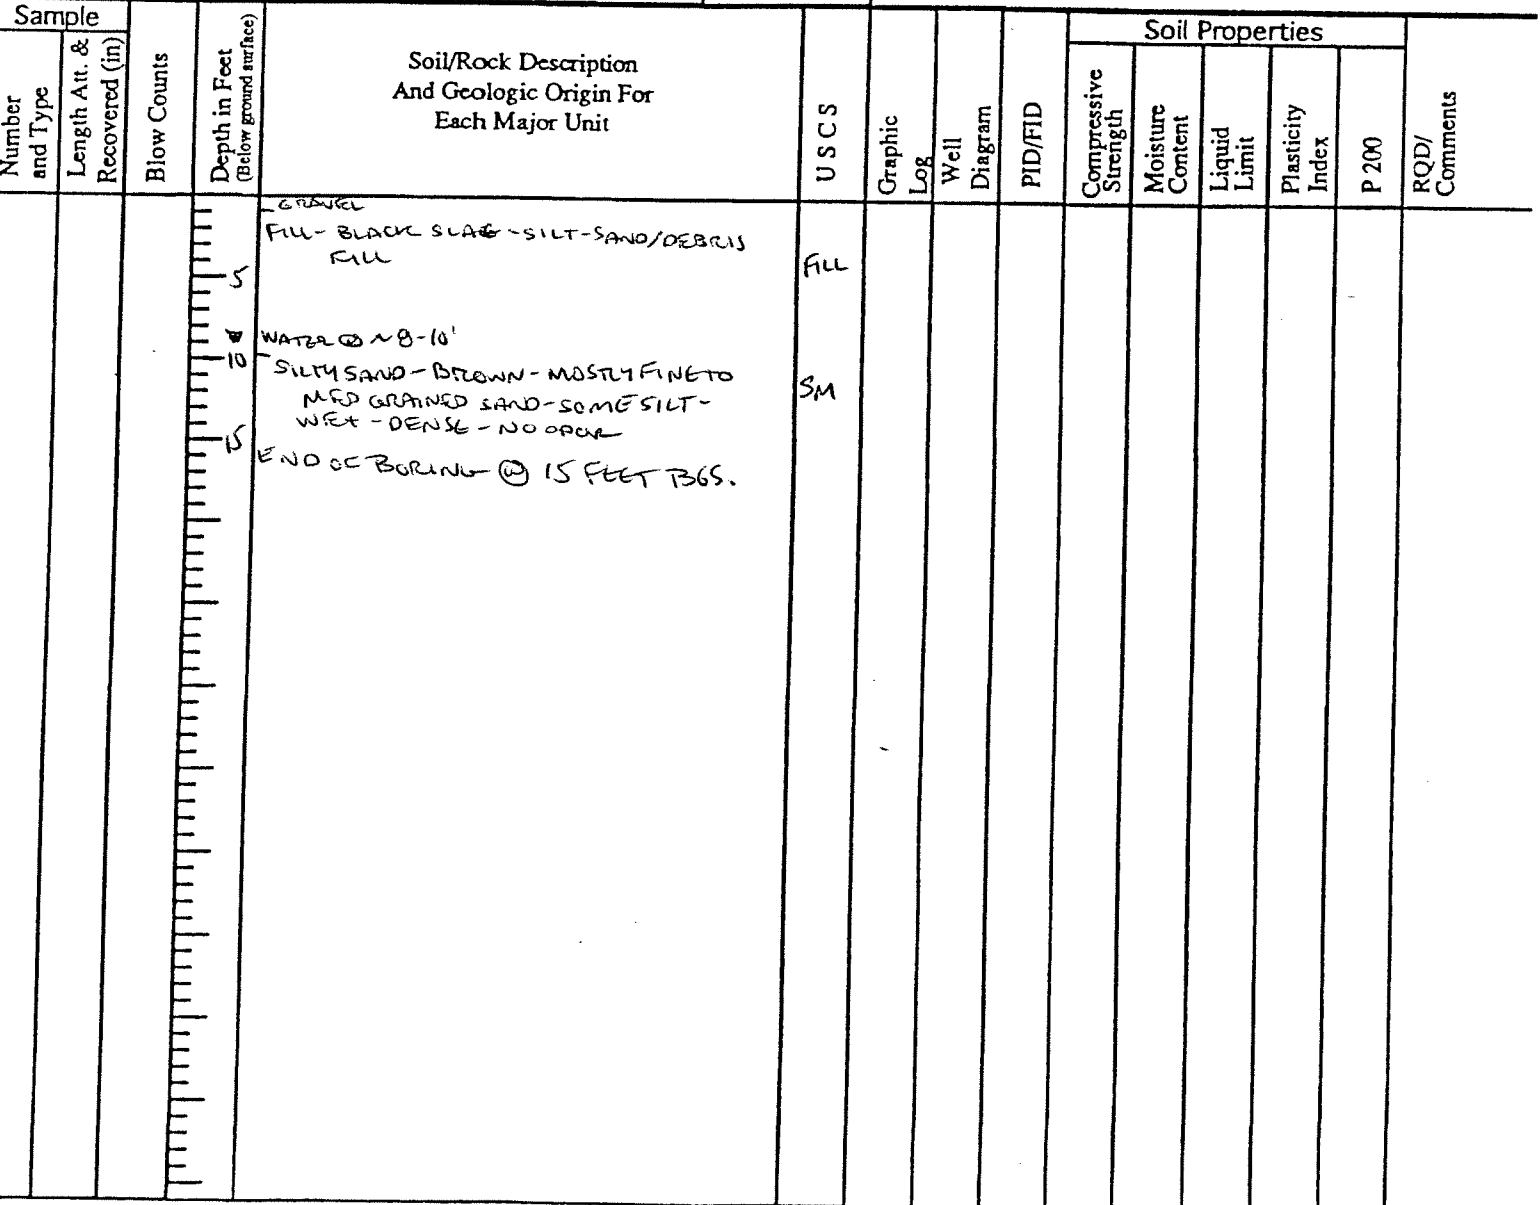 Sample
Number
and Type
Length Att. &
Recovered (in)
Blow Counts
Depth in Feet
(Below ground surface)
Soil/Rock Description
And Geologic Origin For
Each Major Unit
USCS
Graphic
Log
Well
Diagram
PID/FID
Soil Properties
Compressive
Strength
Moisture
Content
Liquid
Limit
Plasticity
Index
P 200
RQD/
Comments
GRAVEL
FILL- BLACK SLAG -SILT-SAND/DEBRIS
FILL
FILL
5
WATER @ ~8-10'
10
SILTY SAND - BROWN - MOSTLY FINE TO
SM
MED GRAINED SAND-SOME SILT-
WET - DENSE - NO ODOR
15
END OF BORING @ 15 FEET BGS.